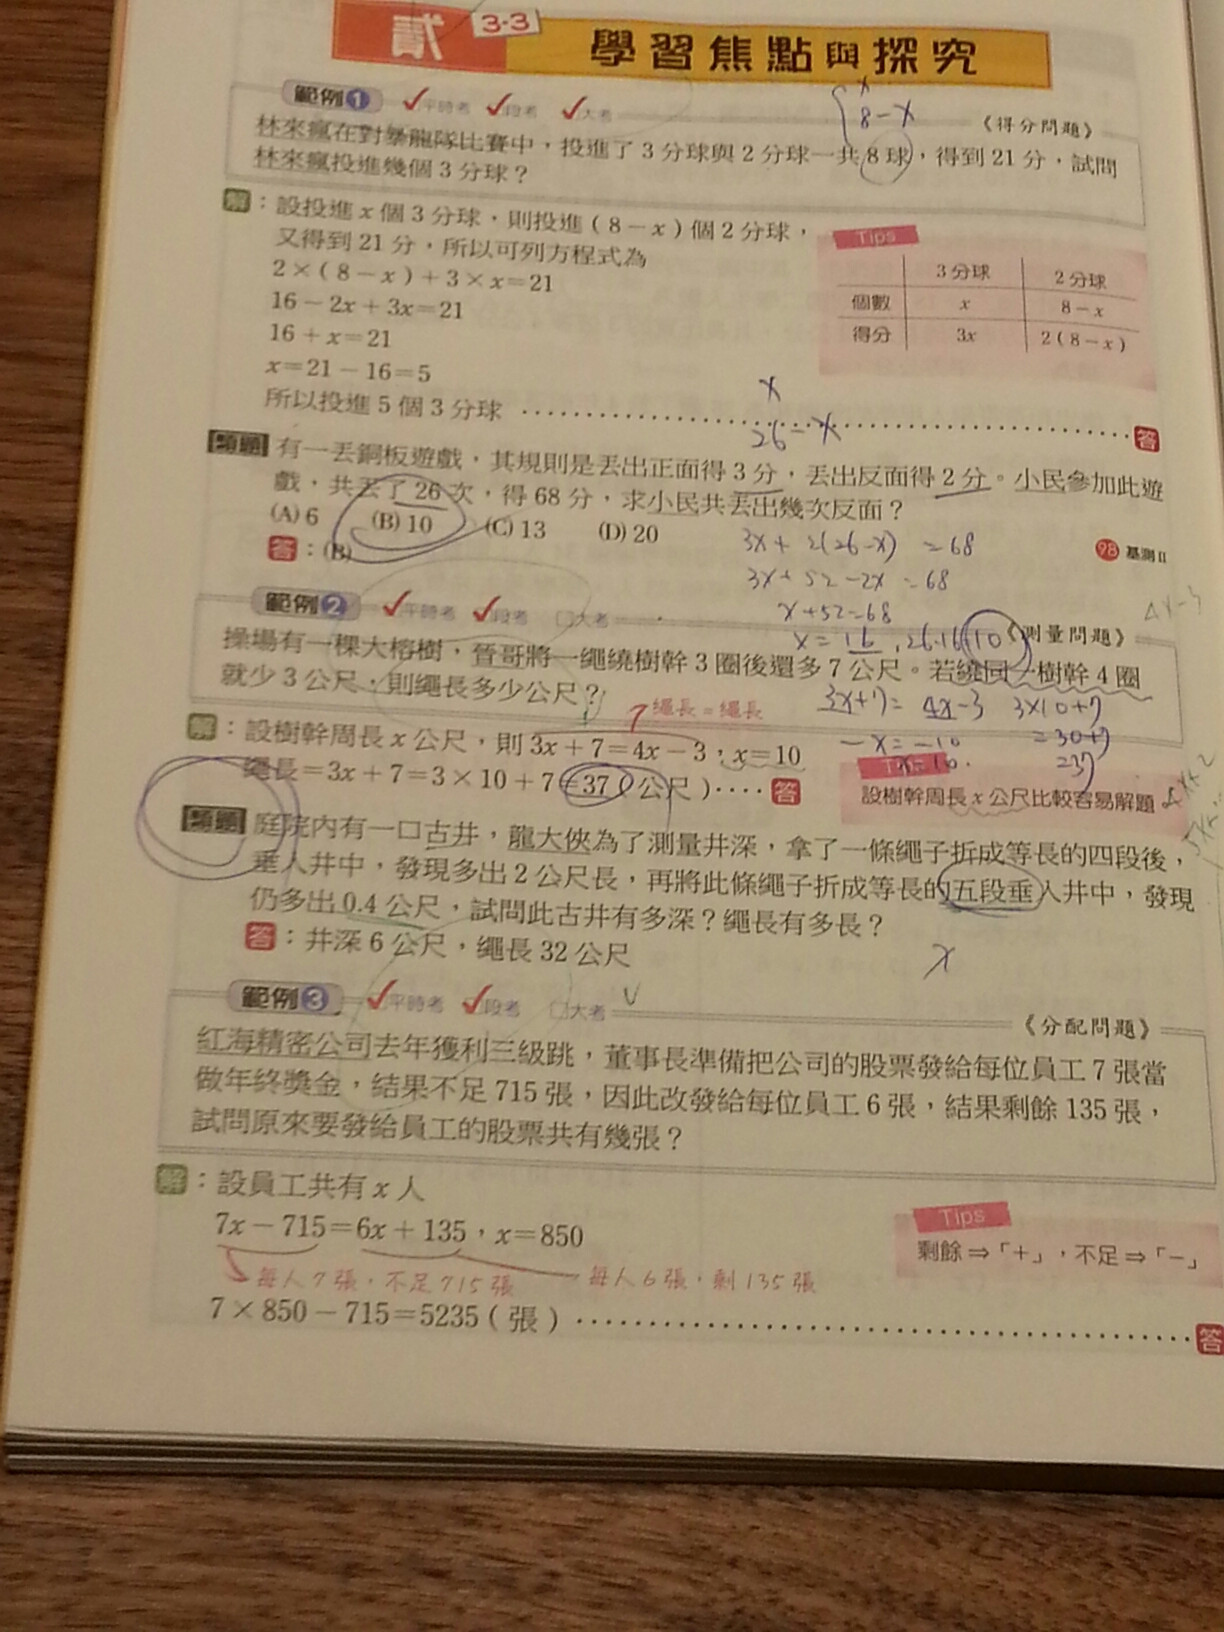 貳 3·3 學習焦點與探究
範例1 平時考 段考 大考
x
8-x
《得分問題》
林來瘋在對暴龍隊比賽中，投進了3分球與2分球一共8球，得到21分，試問
林來瘋投進幾個3分球？
解：設投進x個3分球，則投進(8-x)個2分球，
又得到21分，所以可列方程式為
2×(8-x)+3×x=21
16-2x+3x=21
16+x=21
x=21-16=5
所以投進5個3分球 答
Tips
3分球 2分球
個數 x 8-x
得分 3x 2(8-x)
x
26-x
類題 有一丟銅板遊戲，其規則是丟出正面得3分，丟出反面得2分。小民參加此遊
戲，共丟了26次，得68分，求小民共丟出幾次反面？
(A) 6 (B) 10 (C) 13 (D) 20
答：(B)
98 基測II
3x+2(26-x)=68
3x+52-2x=68
x+52=68
x=16, 26-16=10
範例2 平時考 段考 大考
《測量問題》
4x-3
操場有一棵大榕樹，晉哥將一繩繞樹幹3圈後還多7公尺。若繞同一樹幹4圈
就少3公尺，則繩長多少公尺？
繩長=繩長
3x+7=4x-3 3×10+7
-x=-10 =30+7
x=10. =37
解：設樹幹周長x公尺，則3x+7=4x-3，x=10
繩長=3x+7=3×10+7=37(公尺) 答
Tips
設樹幹周長x公尺比較容易解題
類題 庭院內有一口古井，龍大俠為了測量井深，拿了一條繩子折成等長的四段後，
垂入井中，發現多出2公尺長，再將此條繩子折成等長的五段垂入井中，發現
仍多出0.4公尺，試問此古井有多深？繩長有多長？
答：井深6公尺，繩長32公尺
x
範例3 平時考 段考 大考
《分配問題》
紅海精密公司去年獲利三級跳，董事長準備把公司的股票發給每位員工7張當
做年終獎金，結果不足715張，因此改發給每位員工6張，結果剩餘135張，
試問原來要發給員工的股票共有幾張？
解：設員工共有x人
7x-715=6x+135，x=850
每人7張，不足715張 每人6張，剩135張
7×850-715=5235(張) 答
Tips
剩餘⇒「+」，不足⇒「-」